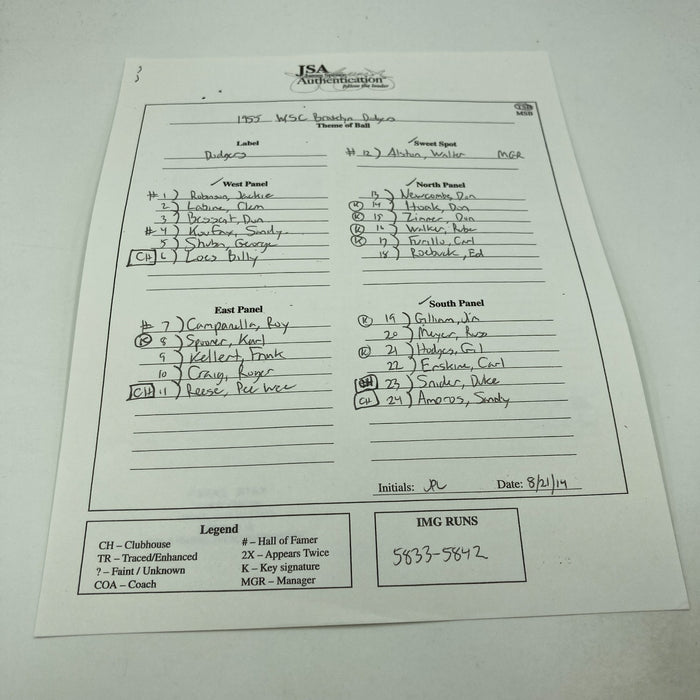 JSA
Authentication
follow the leader
MSB
1955 WSC Brooklyn Dodgers
Theme of Ball
Label
Dodgers
✓ Sweet Spot
#12) Alston, Walter MGR
✓ West Panel
# 1) Robinson, Jackie
2) Labine, Clem
3) Bessent, Don
# 4) Koufax, Sandy
5) Shuba, George
CH 6) Loes Billy
✓ North Panel
13) Newcombe, Don
K 14) Hoak, Don
K 15) Zimmer, Don
K 16) Walker, Rube
K 17) Furillo, Carl
18) Roebuck, Ed
East Panel
# 7) Campanella, Roy
K 8) Spooner, Karl
9) Kellert, Frank
10) Craig, Roger
CH 11) Reese, Pee Wee
✓ South Panel
K 19) Gilliam, Jim
20) Meyer, Russ
K 21) Hodges, Gil
22) Erskine, Carl
23) Snider, Duke
CH 24) Amoros, Sandy
Initials: JPL Date: 8/21/14
Legend
CH – Clubhouse
TR – Traced/Enhanced
? – Faint / Unknown
COA – Coach
# – Hall of Famer
2X – Appears Twice
K – Key signature
MGR – Manager
IMG RUNS
5833-5842